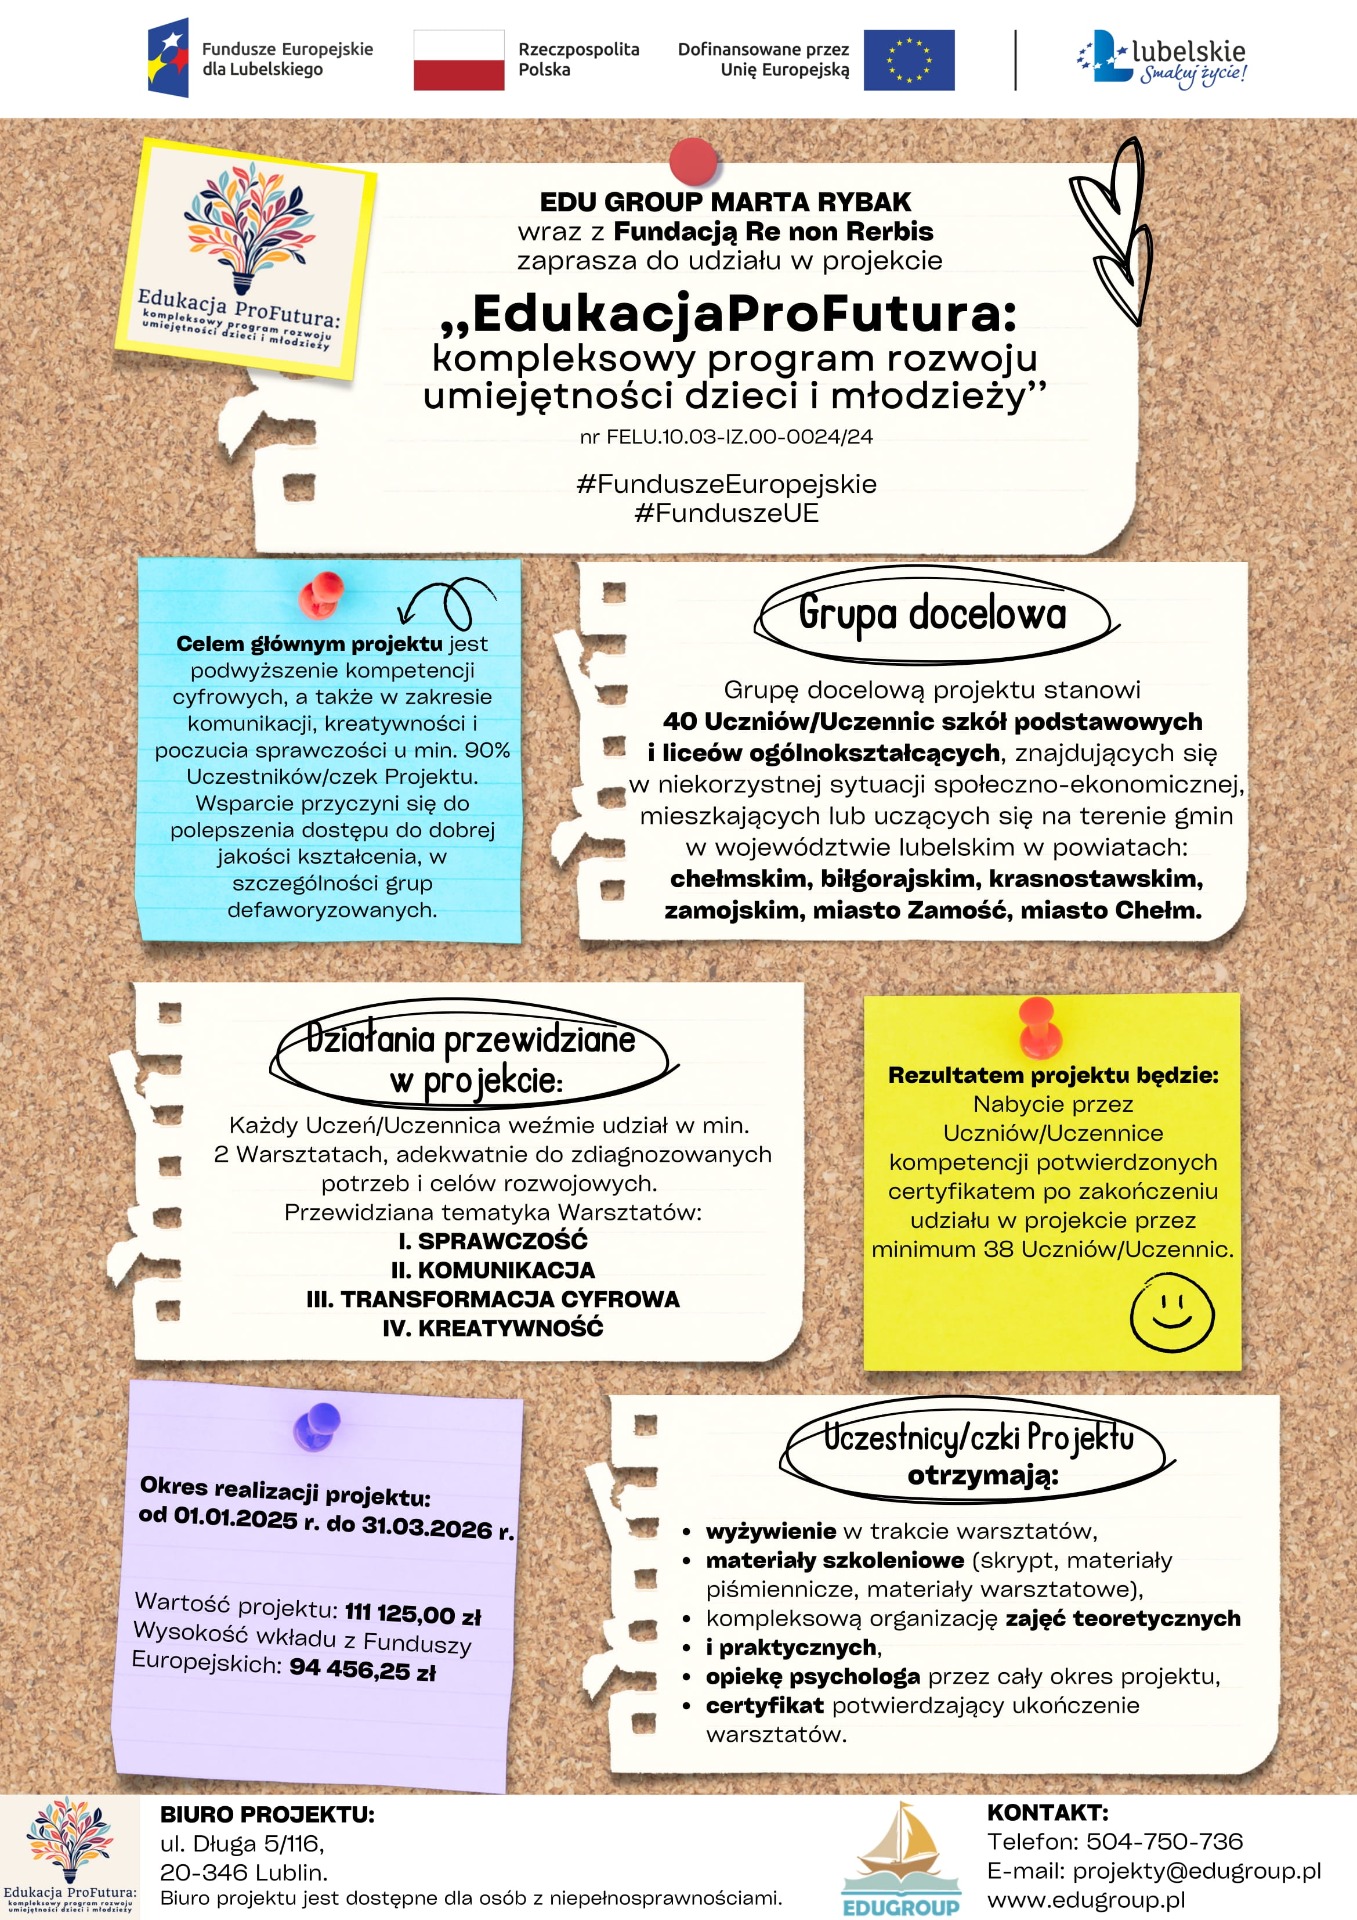 Fundusze Europejskie
dla Lubelskiego
Rzeczpospolita
Polska
Dofinansowane przez
Unię Europejską
lubelskie
Smakuj życie!
Edukacja ProFutura:
kompleksowy program rozwoju
umiejętności dzieci i młodzieży
EDU GROUP MARTA RYBAK
wraz z Fundacją Re non Rerbis
zaprasza do udziału w projekcie
„EdukacjaProFutura:
kompleksowy program rozwoju
umiejętności dzieci i młodzieży”
nr FELU.10.03-IZ.00-0024/24
#FunduszeEuropejskie
#FunduszeUE
Celem głównym projektu jest
podwyższenie kompetencji
cyfrowych, a także w zakresie
komunikacji, kreatywności i
poczucia sprawczości u min. 90%
Uczestników/czek Projektu.
Wsparcie przyczyni się do
polepszenia dostępu do dobrej
jakości kształcenia, w
szczególności grup
defaworyzowanych.
Grupa docelowa
Grupę docelową projektu stanowi
40 Uczniów/Uczennic szkół podstawowych
i liceów ogólnokształcących, znajdujących się
w niekorzystnej sytuacji społeczno-ekonomicznej,
mieszkających lub uczących się na terenie gmin
w województwie lubelskim w powiatach:
chełmskim, biłgorajskim, krasnostawskim,
zamojskim, miasto Zamość, miasto Chełm.
Działania przewidziane
w projekcie:
Każdy Uczeń/Uczennica weźmie udział w min.
2 Warsztatach, adekwatnie do zdiagnozowanych
potrzeb i celów rozwojowych.
Przewidziana tematyka Warsztatów:
I. SPRAWCZOŚĆ
II. KOMUNIKACJA
III. TRANSFORMACJA CYFROWA
IV. KREATYWNOŚĆ
Rezultatem projektu będzie:
Nabycie przez
Uczniów/Uczennice
kompetencji potwierdzonych
certyfikatem po zakończeniu
udziału w projekcie przez
minimum 38 Uczniów/Uczennic.
Okres realizacji projektu:
od 01.01.2025 r. do 31.03.2026 r.
Wartość projektu: 111 125,00 zł
Wysokość wkładu z Funduszy
Europejskich: 94 456,25 zł
Uczestnicy/czki Projektu
otrzymają:
• wyżywienie w trakcie warsztatów,
• materiały szkoleniowe (skrypt, materiały
piśmiennicze, materiały warsztatowe),
• kompleksową organizację zajęć teoretycznych
• i praktycznych,
• opiekę psychologa przez cały okres projektu,
• certyfikat potwierdzający ukończenie
warsztatów.
Edukacja ProFutura:
kompleksowy program rozwoju
umiejętności dzieci i młodzieży
BIURO PROJEKTU:
ul. Długa 5/116,
20-346 Lublin.
Biuro projektu jest dostępne dla osób z niepełnosprawnościami.
EDUGROUP
KONTAKT:
Telefon: 504-750-736
E-mail: projekty@edugroup.pl
www.edugroup.pl